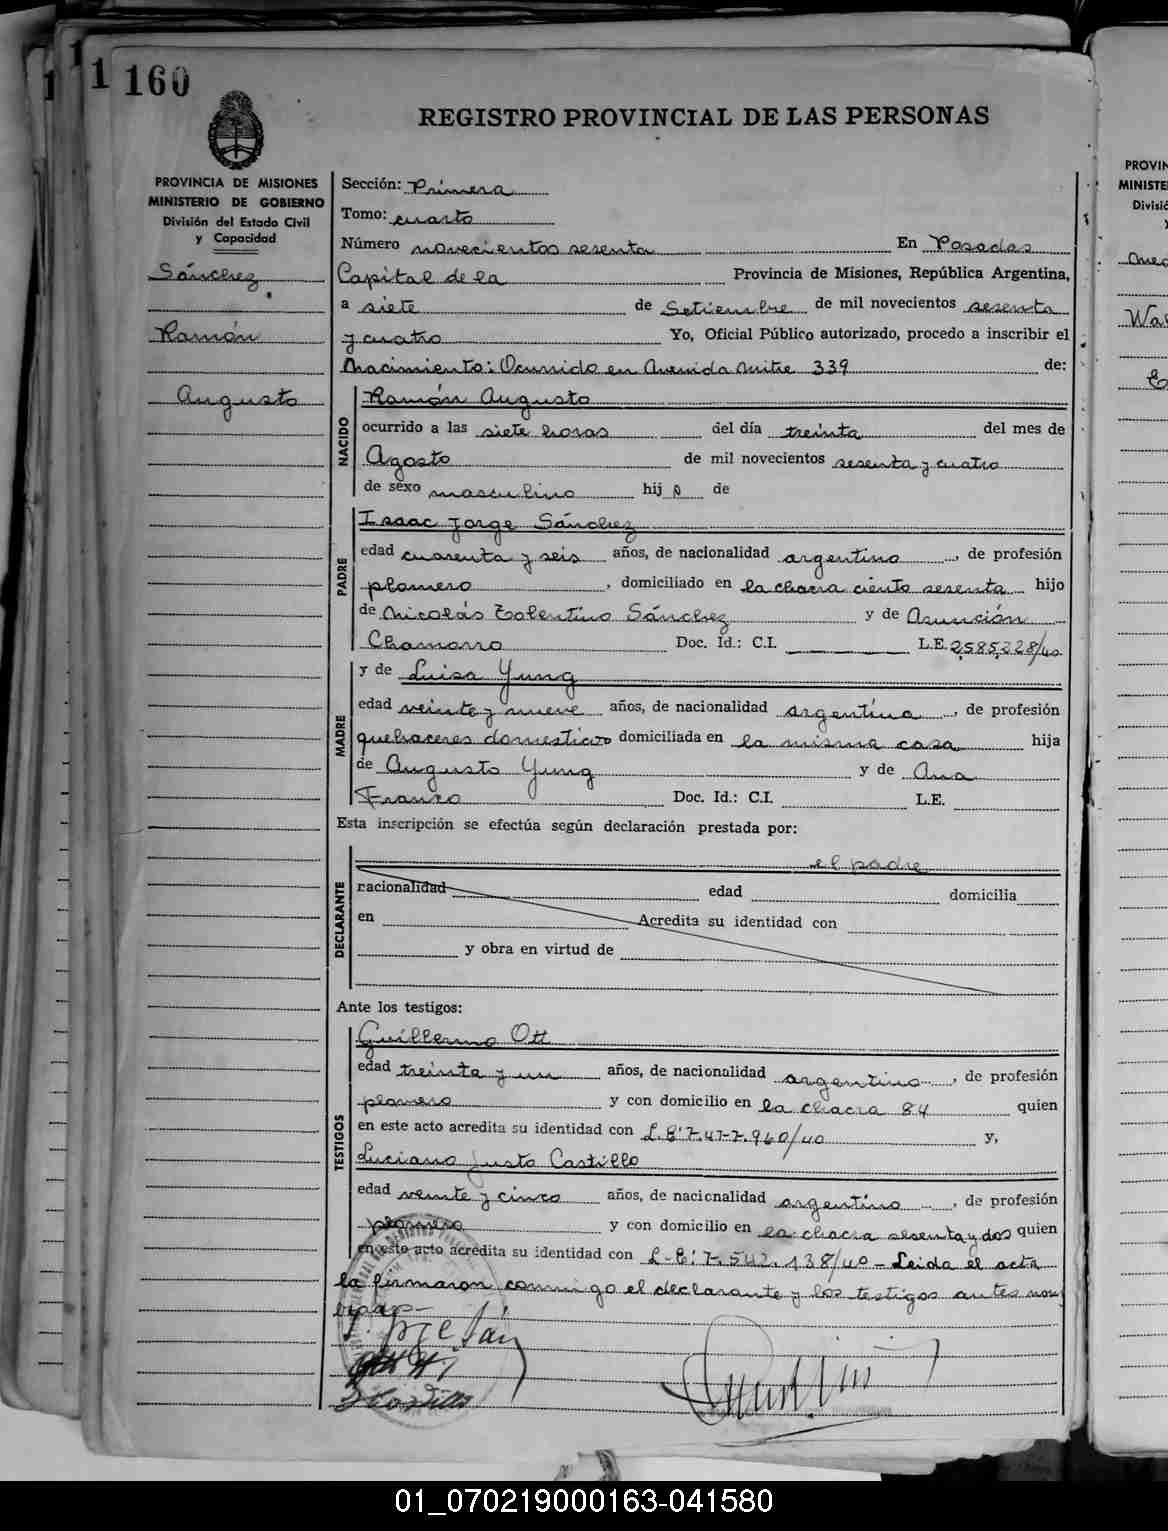 1 160
REGISTRO PROVINCIAL DE LAS PERSONAS
PROVINCIA DE MISIONES
MINISTERIO DE GOBIERNO
División del Estado Civil
y Capacidad
Sánchez
Ramón
Augusto
Sección: Primera
Tomo: cuarto
Número novecientos sesenta En Posadas
Capital de la Provincia de Misiones, República Argentina,
a siete de Setiembre de mil novecientos sesenta
y cuatro Yo, Oficial Público autorizado, procedo a inscribir el
Nacimiento: Ocurrido en Avenida Mitre 339 de:
NACIDO
Ramón Augusto
ocurrido a las siete horas del día treinta del mes de
Agosto de mil novecientos sesenta y cuatro
de sexo masculino hij o de
PADRE
Isaac Jorge Sánchez
edad cuarenta y seis años, de nacionalidad argentino, de profesión
plomero, domiciliado en la chacra ciento sesenta hijo
de Nicolás Tolentino Sánchez y de Asunción
Chamorro Doc. Id.: C.I. L.E. 2,585,228/40
MADRE
y de Luisa Yung
edad veinte y nueve años, de nacionalidad argentina, de profesión
quehaceres domesticos domiciliada en la misma casa hija
de Augusto Yung y de Ana
Franco Doc. Id.: C.I. L.E.
Esta inscripción se efectúa según declaración prestada por:
DECLARANTE
el padre
nacionalidad edad domicilia
en Acredita su identidad con
y obra en virtud de
Ante los testigos:
TESTIGOS
Guillermo Ott
edad treinta y un años, de nacionalidad argentino, de profesión
plomero y con domicilio en la chacra 84 quien
en este acto acredita su identidad con L.E: 7.477.960/40 y,
Luciano Justo Castillo
edad veinte y cinco años, de nacionalidad argentino, de profesión
plomero y con domicilio en la chacra sesenta y dos quien
en este acto acredita su identidad con L.E: 7.542.138/40 - Leida el acta
la firmaron conmigo el declarante y los testigos antes nom
brados-
PROVIN
MINISTE
Divisió
Wal
01_070219000163-041580